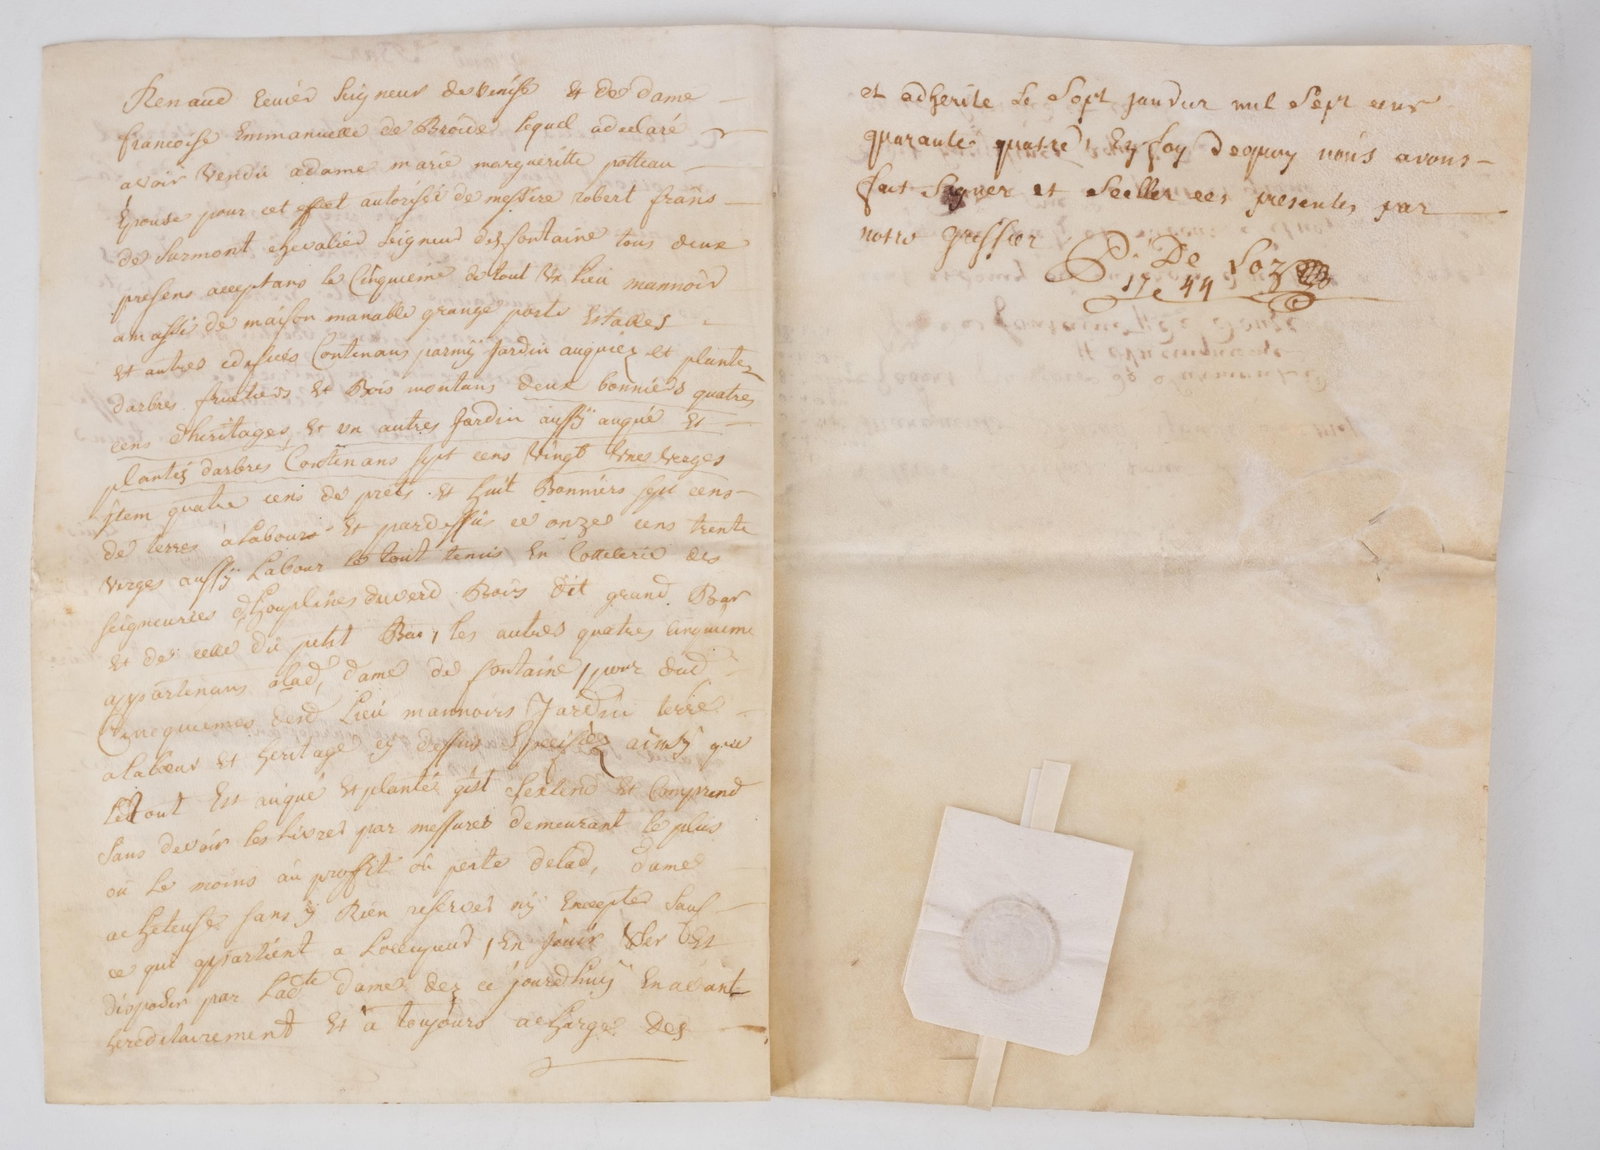 Renaud ecuiér Seigneur de venise Et de dame
francoise Emmanuelle de Broide lequel adeclaré
avoir vendu adame marie margueritte potteau
Epouse pour cet effet autorisée de messire robert frans
de Surmont chevalier Seigneur desfontaine tous deux
presens acceptans le Cinquieme de tout un lieu mannoir
amassé de maison manable grange porte Estables
et autres edifices Contenans parmÿ Jardin auquiez et plantez
darbres fruitiers et Bois montans deux bonniers quatres
cens dheritages, Et un autres Jardin aussÿ auqué Et
plantés darbres Contenans sept cens Vingt unes verges
jtem quatre cens de prets Et huit Bonniers sept cens
de terres alabour Et pardessus ce onzes cens trente
verges aussÿ Labour le tout tenus En Cotterie des
seigneuries dhouplines duverd Bois dit grand Bar
Et de celle du petit Bar, les autres quatres Cinquieme
appartenans alad, dame de fontaine, pour dud
Cincquiemes desd Lieu mannoirs Jardin terre
alabour Et heritage cy dessus Speciféez ainsÿ que
le tout Est auqué Et planté gist sextend Et Comprend
sans devoir les livres par messures demeurant le plus
ou le moins au proffit ou perte delad, dame
acheteuse sans ÿ Rien reserver nÿ Excepter sauf
ce qui appartient a Loccupeur, En jouir User Et
disposer par Ladte dame dez ce jourdhuÿ Enavant
hereditairement Et a toujours acharge des
et adherité le Sept janvier mil Sept cens
quarante quatre, En foy dequoy nous avons
fait Signer et Seeller ces presentes par
notre greffier
De
1744